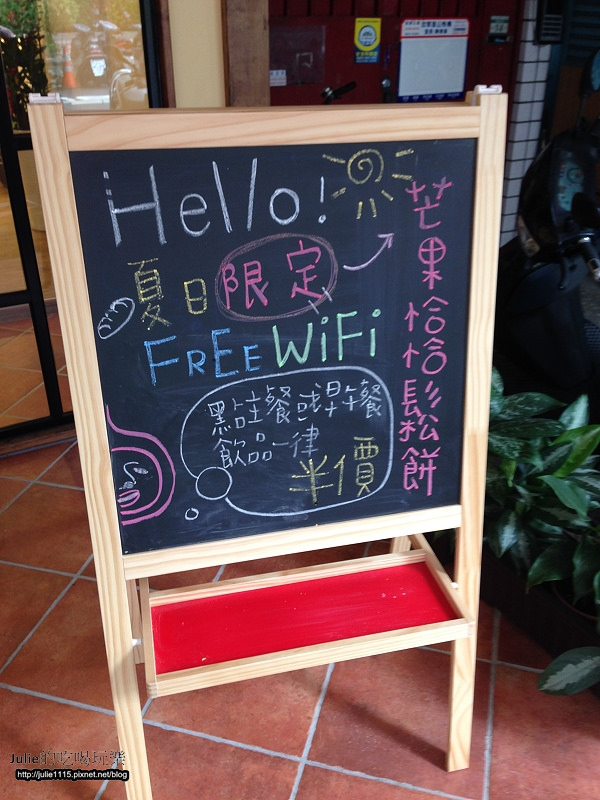 Hello!
夏日限定
芒果恰恰鬆餅
FREE WiFi
點主餐或早午餐
飲品一律
半價
Julie的吃喝玩樂
http://julie1115.pixnet.net/blog